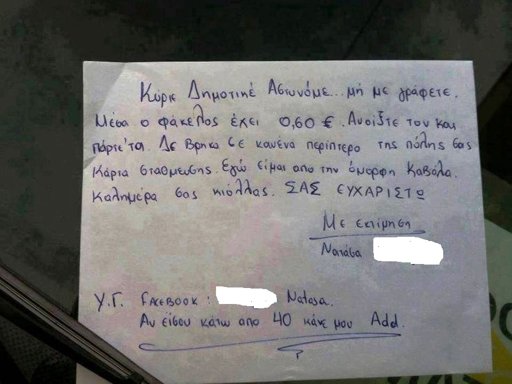 Κύριε Δημοτικέ Αστυνόμε... μή με γράφετε.
Μέσα ο φάκελος έχει 0,60 €. Ανοίξτε τον και
πάρτε'τα. Δε βρήκα σε κανένα περίπτερο της πόλης σας
κάρτα στάθμευσης. Εγώ είμαι από την όμορφη Καβάλα.
Καλημέρα σας κιόλλας. ΣΑΣ ΕΥΧΑΡΙΣΤΩ
Με εκτίμηση
Νατάσα
Υ.Γ. FACEBOOK: Natasa.
Αν είσαι κάτω από 40 κάνε μου Add.